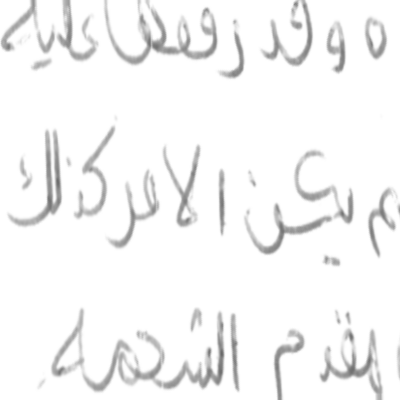 ه وقد رفعها عليه
م يكن الامر كذلك
القدم الشحمة